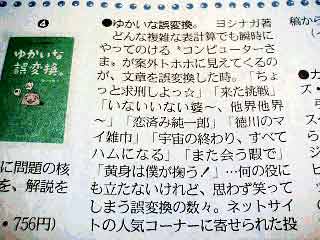 ❹
ゆかいな
誤変換。
●ゆかいな誤変換。　ヨシナガ著
どんな複雑な表計算でも瞬時に
やってのける〝コンピューターさ
ま〟が案外トホホに見えてくるの
が、文章を誤変換した時。「ちょ
っと求刑しよっ☆」「来た挑戦」
「いないいない婆〜、他界他界
〜」「恋済み純一郎」「徳川のマ
イ雑巾」「宇宙の終わり、すべて
ハムになる」「また会う暇で」
「黄身は僕が掬う！」…何の役に
も立たないけれど、思わず笑って
しまう誤変換の数々。ネットサイ
トの人気コーナーに寄せられた投
に問題の核
を、解説を
・756円）
稿から
（イ
ズ・